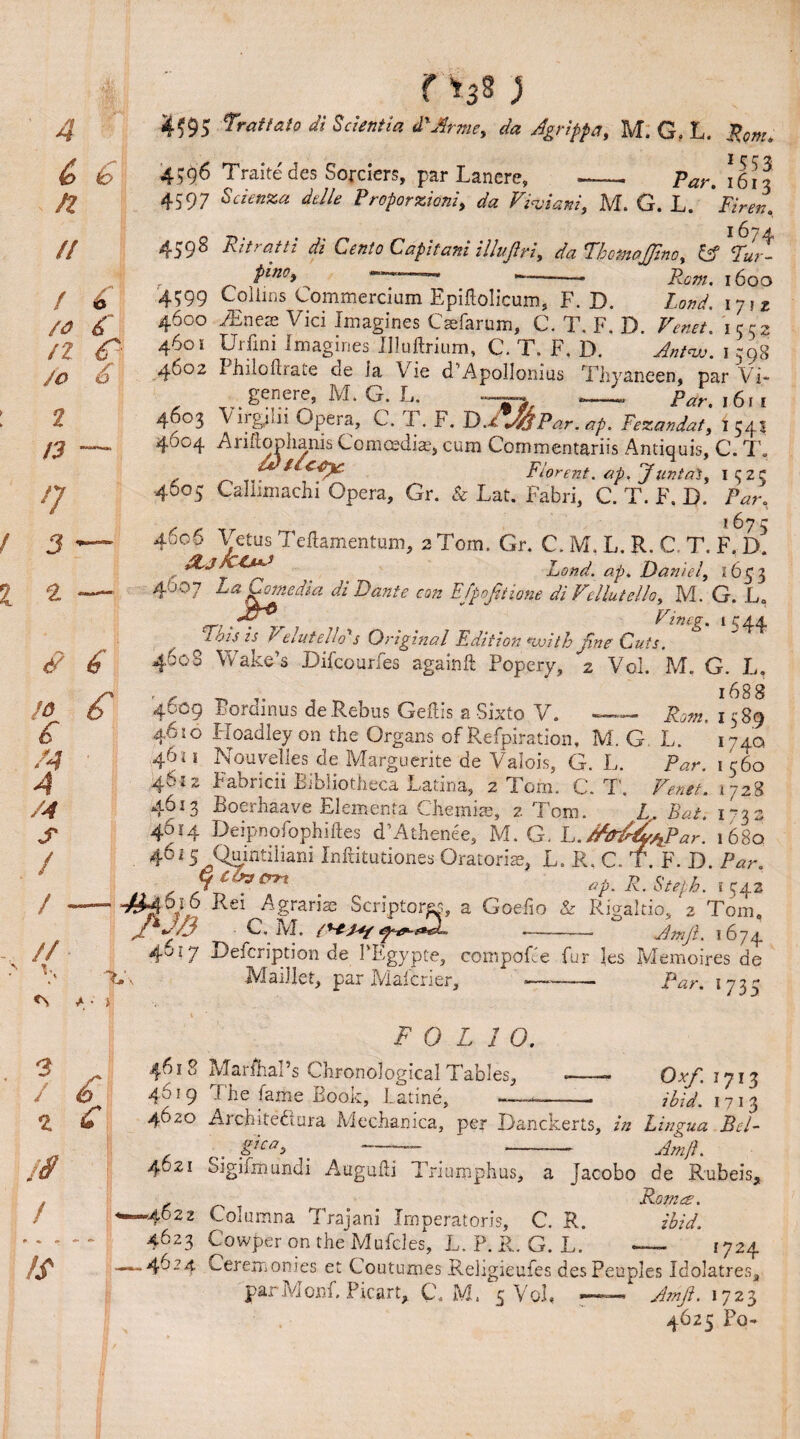 ( 138 )
4 4595 Trattato di Scientia d'Arme, da Agrippa, M. G. L. Rom.
1553
6 6 4596 Traité des Sorciers, par Lancre, —— Par. 1613
12 4597 Scienza delle Proporzioni, da Viviani, M. G. L. Firen.
1674
11 4598 Ritratti di Cento Capitani illuſtri, da Thomaſſino, & Tur-
pino, —— —— Rom. 1600
1 6 4599 Collins Commercium Epiſtolicum, F. D. Lond. 1712
10 6 4600 Æneæ Vici Imagines Cæſarum, C. T. F. D. Venet. 1552
12 6 4601 Urſini Imagines Illuſtrium, C. T. F. D. Antw. 1598
10 6 4602 Philoſtrate de la Vie d'Apollonius Thyaneen, par Vi-
genere, M. G. L. —— —— Par. 1611
2 4603 Virgilii Opera, C. T. F. D. Par. ap. Fezandat, 1541
13 — 4604 Ariſtophanis Comœdiæ, cum Commentariis Antiquis, C. T.
Florent. ap. Juntas, 1525
17 4605 Callimachi Opera, Gr. & Lat. Fabri, C. T. F. D. Par.
1675
3 — 4606 Vetus Teſtamentum, 2 Tom. Gr. C. M. L. R. C. T. F. D.
Lond. ap. Daniel, 1653
2 — 4607 La Comedia di Dante con Eſpoſitione di Vellutello, M. G. L.
Vineg. 1544
This is Velutello's Original Edition with fine Cuts.
8 6 4608 Wake's Diſcourſes againſt Popery, 2 Vol. M. G. L.
1688
10 6 4609 Bordinus de Rebus Geſtis a Sixto V. —— Rom. 1589
6 4610 Hoadley on the Organs of Reſpiration, M. G. L. 1740
14 4611 Nouvelles de Marguerite de Valois, G. L. Par. 1560
4 4612 Fabricii Bibliotheca Latina, 2 Tom. C. T. Venet. 1728
14 4613 Boerhaave Elementa Chemiæ, 2 Tom. L. Bat. 1732
5 4614 Deipnoſophiſtes d'Athenée, M. G. L. Par. 1680
1 4615 Quintiliani Inſtitutiones Oratoriæ, L. R. C. T. F. D. Par.
ap. R. Steph. 1542
1 — 4616 Rei Agrariæ Scriptores, a Goeſio & Rigaltio, 2 Tom.
C. M. —— Amſt. 1674
11 4617 Deſcription de l'Egypte, compoſée ſur les Memoires de
Maillet, par Maſcrier, —— Par. 1735
FOLIO.
3 4618 Marſhal's Chronological Tables, —— Oxf. 1713
1 6 4619 The ſame Book, Latiné, —— ibid. 1713
2 6 4620 Architectura Mechanica, per Danckerts, in Lingua Bel-
gica, —— —— Amſt.
18 4621 Sigiſmundi Auguſti Triumphus, a Jacobo de Rubeis,
Romæ.
1 4622 Columna Trajani Imperatoris, C. R. ibid.
4623 Cowper on the Muſcles, L. P. R. G. L. —— 1724
15 4624 Ceremonies et Coutumes Religieuſes des Peuples Idolatres,
par Monſ. Picart, C. M. 5 Vol. —— Amſt. 1723
4625 Po-